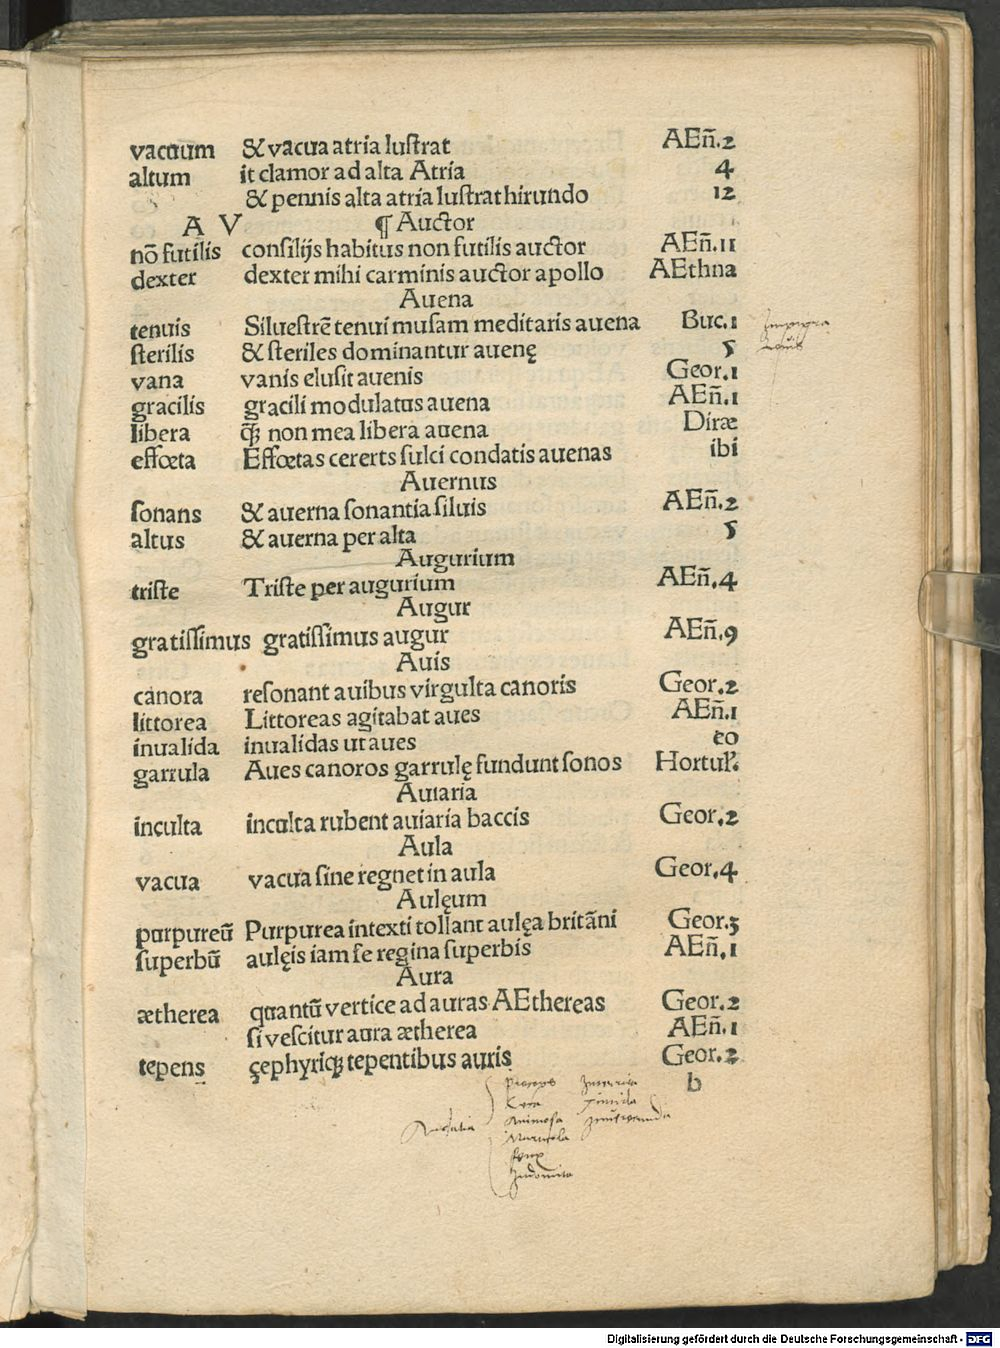 vacuum & vacua atria lustrat AEñ.2
altum it clamor ad alta Atria 4
& pennis alta atria lustrat hirundo 12
A V ¶ Auctor
nō futilis consilijs habitus non futilis auctor AEñ.11
dexter dexter mihi carminis auctor apollo AEthna
Auena
tenuis Siluestrē tenui musam meditaris auena Buc.1
sterilis & steriles dominantur auenę 5
vana vanis elusit auenis Geor.1
gracilis gracili modulatus auena AEñ.1
libera qꝫ non mea libera auena Diræ
effœta Effœtas cererts sulci condatis auenas ibi
Auernus
sonans & auerna sonantia siluis AEñ.2
altus & auerna per alta 5
Augurium
triste Triste per augurium AEñ.4
Augur
gratissimus gratissimus augur AEñ.9
Auis
canora resonant auibus virgulta canoris Geor.2
littorea Littoreas agitabat aues AEñ.1
inualida inualidas ut aues eo
garrula Aues canoros garrulę fundunt sonos Hortul.
Auiaria
inculta inculta rubent auiaria baccis Geor.2
Aula
vacua vacua sine regnet in aula Geor.4
Aulęum
purpureū Purpurea intexti tollant aulęa britāni Geor.3
superbū aulęis iam se regina superbis AEñ.1
Aura
ætherea quantū vertice ad auras AEthereas Geor.2
si vescitur aura ætherea AEñ.1
tepens çephyriqꝫ tepentibus auris Geor.2
b
Audatia
Animosa
Indomita
Digitalisierung gefördert durch die Deutsche Forschungsgemeinschaft - DFG